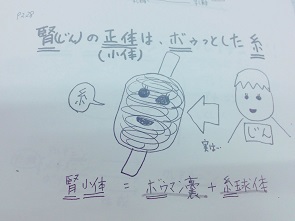 P128
腎(じん)の正体は、ボゥっとした糸
(小体)
糸
じん
実は…
腎小体 = ボウマン嚢 + 糸球体